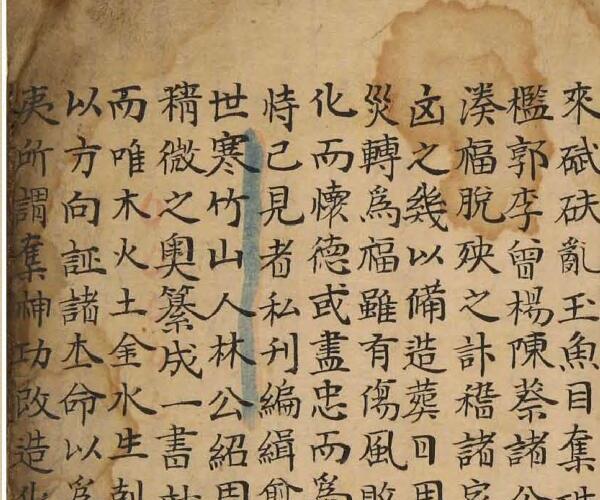 來碔砆亂玉魚目奪珠
檻郭李曾楊陳蔡諸公
湊福脫殃之計稽諸家
凶之幾以備造葬日用
災轉為福雖有傷風敗
化而懷德或盡忠而為
恃己見者私刊編緝俞
世寒竹山人林公紹周
精微之奧纂成一書
而唯木火土金水生剋
以方向証諸本命以為
夷所謂奪神功改造化